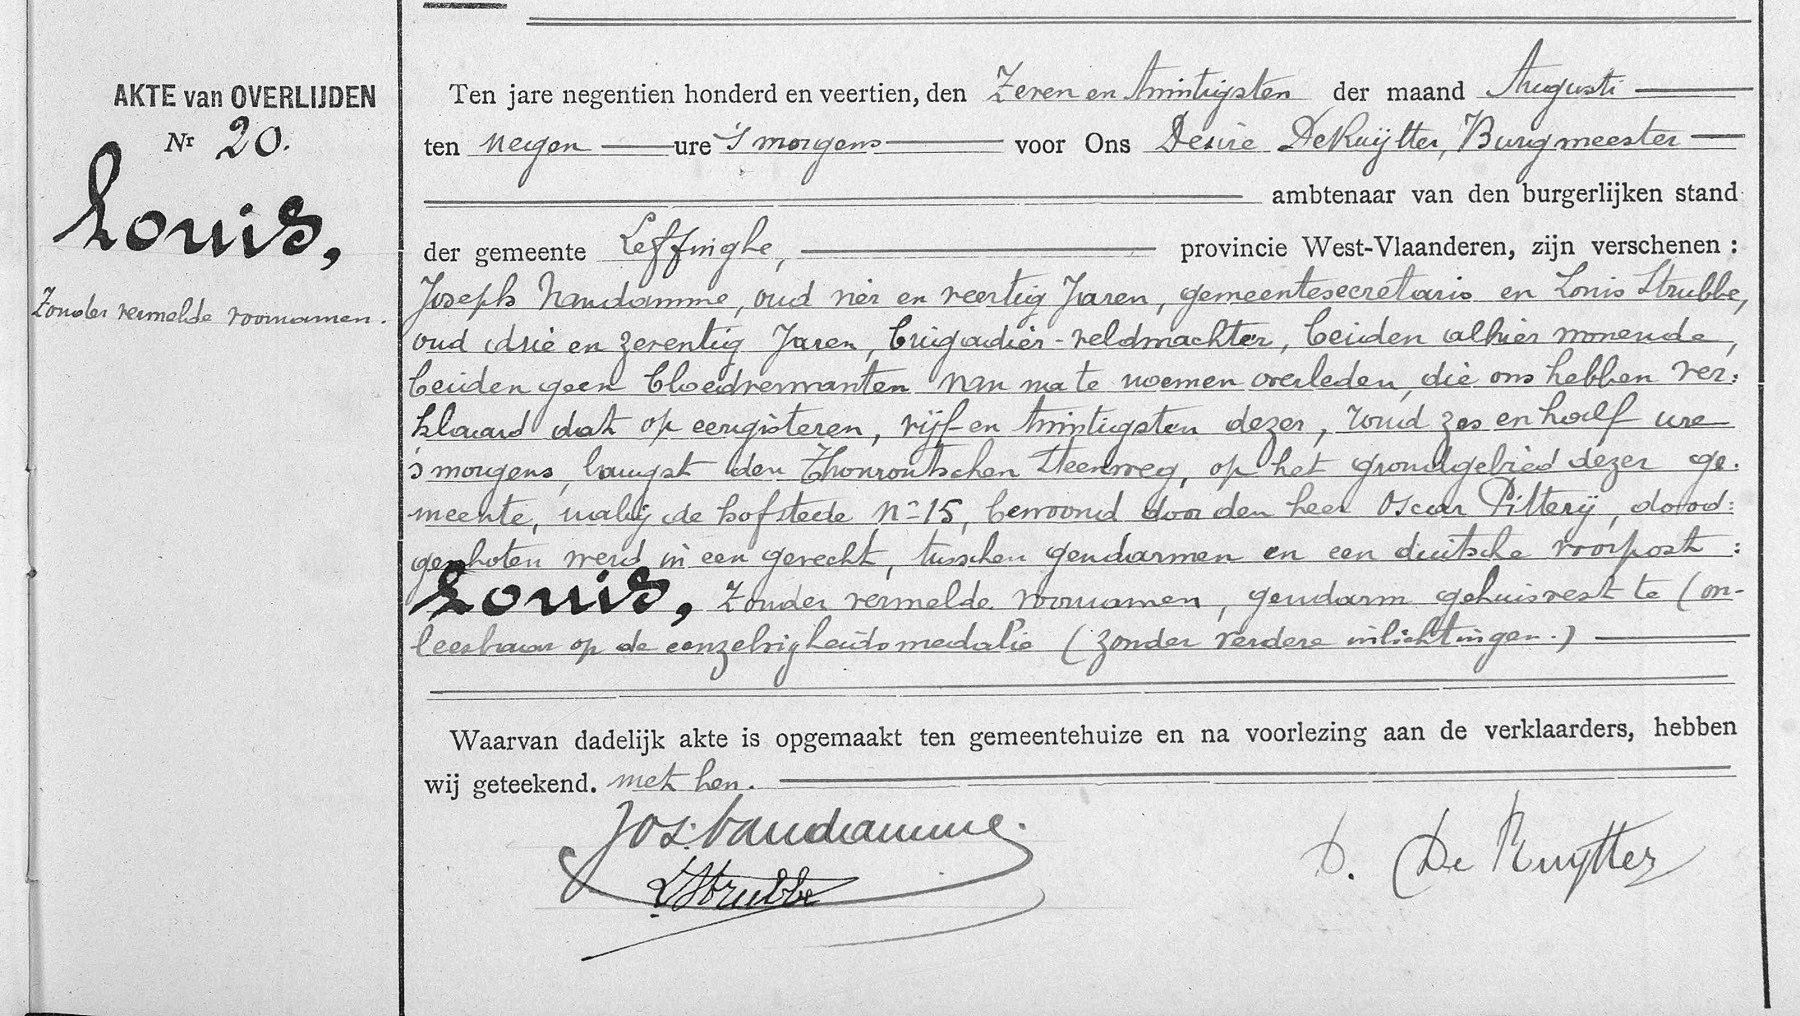 AKTE van OVERLIJDEN
Nr 20.
Louis,
Zonder vermelde voornamen.
Ten jare negentien honderd en veertien, den Zeven en twintigsten der maand Augusti
ten negen ure 's morgens voor Ons Desiré DeRuÿtter, Burgmeester
ambtenaar van den burgerlijken stand
der gemeente Leffinghe, provincie West-Vlaanderen, zijn verschenen :
Joseph Vandamme, oud vier en veertig Jaren, gemeentesecretaris en Louis Strubbe,
oud drie en zeventig Jaren, brigadier-veldwachter, beiden alhier wonende,
beiden geen bloedverwanten van na te noemen overleden, die ons hebben ver:
klaard dat op eergisteren, vijf-en twintigsten dezer, rond zes en half ure
's morgens, langst den Thouroutschen Steenweg, op het grondgebied dezer ge:
meente, nabij de hofstede No 15, bewoond door den heer Oscar Pitterÿ, dood:
geschoten werd in een gevecht, tusschen gendarmen en een duitsche voorpost :
Louis, Zonder vermelde voornamen, gendarm gehuisvest te (on-
leesbaar op de eenzelvigheidsmedalie (zonder verdere inlichtingen.)
Waarvan dadelijk akte is opgemaakt ten gemeentehuize en na voorlezing aan de verklaarders, hebben
wij geteekend. met hen.
Jos. Vandamme.
L Strubbe
D. De Ruytter